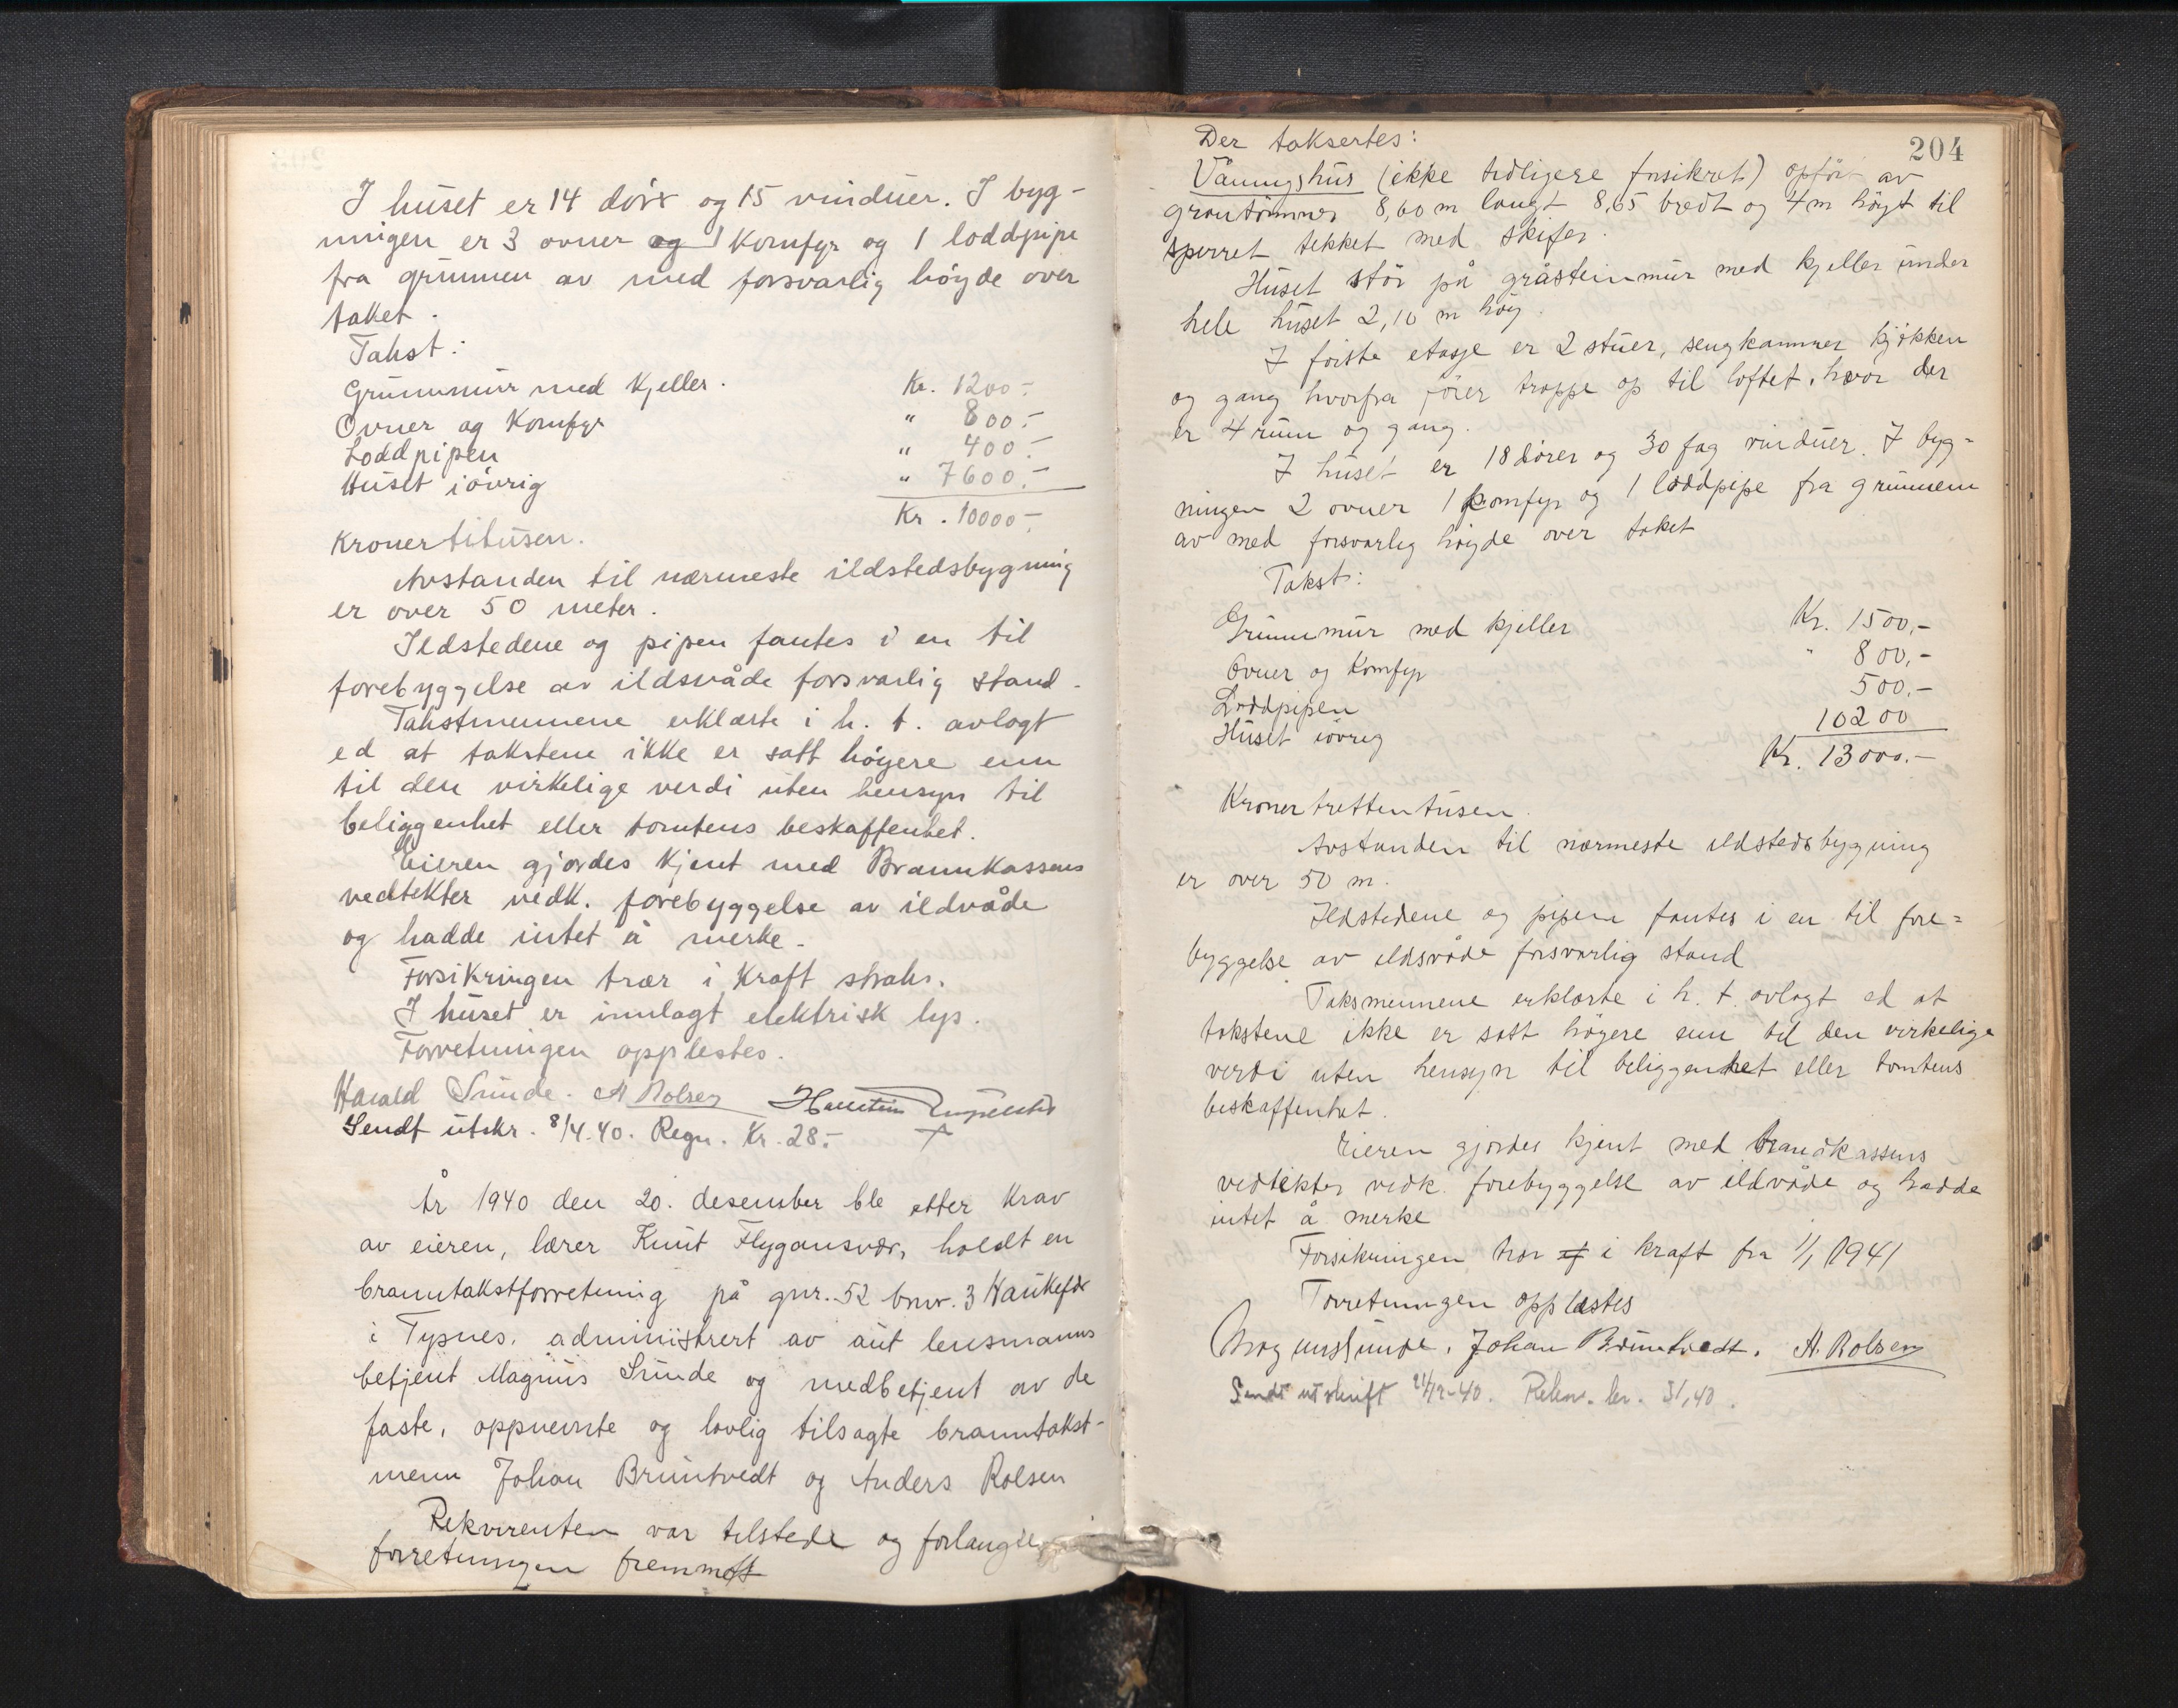 I huset er 14 dörr og 15 vinduer. I byg-
ningen er 3 ovner og 1 Komfyr og 1 loddpipe
fra grunnen av med forsvarlig höyde over
taket.
Takst:
Grunnmur med Kjeller. Kr. 1200.-
Ovner og Komfyr " 800.-
Loddpipen " 400.-
Huset iövrig " 7600.-
Kr. 10000.-
Kroner titusen.
Avstanden til nærmeste ildstedsbygning
er over 50 meter.
Ildstedene og pipen fantes i en til
forebyggelse av ildsvåde forsvarlig stand.
Takstmennene erklærte i h. t. avlagt
ed at takstene ikke er satt höyere enn
til den virkelige verdi uten hensyn til
beliggenhet eller tomtens beskaffenhet.
Eieren gjordes Kjent med Brannkassens
vedtekter vedk. forebyggelse av ildvåde
og hadde intet å merke.
Forsikringen trær i Kraft straks.
I huset er innlagt elektrisk lys.
Forretningen opplestes.
Harald Sunde. A Rolsen
Sendt utskr. 8/4.40. Regn. Kr. 28.-
År 1940 den 20. desember ble etter Krav
av eieren, lærer Knut Flygansvær, holdt en
branntakstforretning på gnr. 52 bnr. 3
i Tysnes, administrert av aut lensmanns
betjent Magnus Sunde og medbetjent av de
faste, oppnevnte og lovlig tilsagte branntakst-
menn Johan Bruntvedt og Anders Rolsen
Rekvirenten var tilstede og forlangte
forretningen fremmet
204
Der taksertes:
Våningshus (ikke tidligere forsikret) opfört av
grantömmer 8,60 m langt 8,65 bredt og 4 m höyt til
sperret tekket med skifer.
Huset står på gråsteinmur med kjeller under
hele huset 2,10 m höy.
I förste etasje er 2 stuer, sengkammer kjökken
og gang hvorfra förer trappe op til loftet, hvor der
er 4 rum og gang.
I huset er 18 dörer og 30 fag vinduer. I byg=
ningen 2 ovner 1 komfyr og 1 loddpipe fra grunnen
av med forsvarlig höyde over taket
Takst:
Grunnmur med kjeller Kr. 1500,-
Ovner og Komfyr " 800,-
Loddpipen 500,-
Huset iövrig 10200
Kr. 13000.-
Kroner trettentusen.
Avstanden til nærmeste ildstedsbygning
er over 50 m.
Ildstedene og pipen fantes i en til fore=
byggelse av ildsvåde forsvarlig stand
Taksmennene erklærte i h. t. avlagt ed at
takstene ikke er satt höyere enn til den virkelige
verdi uten hensyn til beliggenhet eller tomtens
beskaffenhet.
Eieren gjordes kjent med brandkassens
vedtekter vedk. forebyggelse av ildvåde og hadde
intet å merke
Forsikringen trær i kraft fra 1/1 1941
Forretningen opplæstes
Magnus Sunde. Johan Bruntvedt. A. Rolsen
Sendt utskrift 21/12-40. Rekn. kr. 31,40.